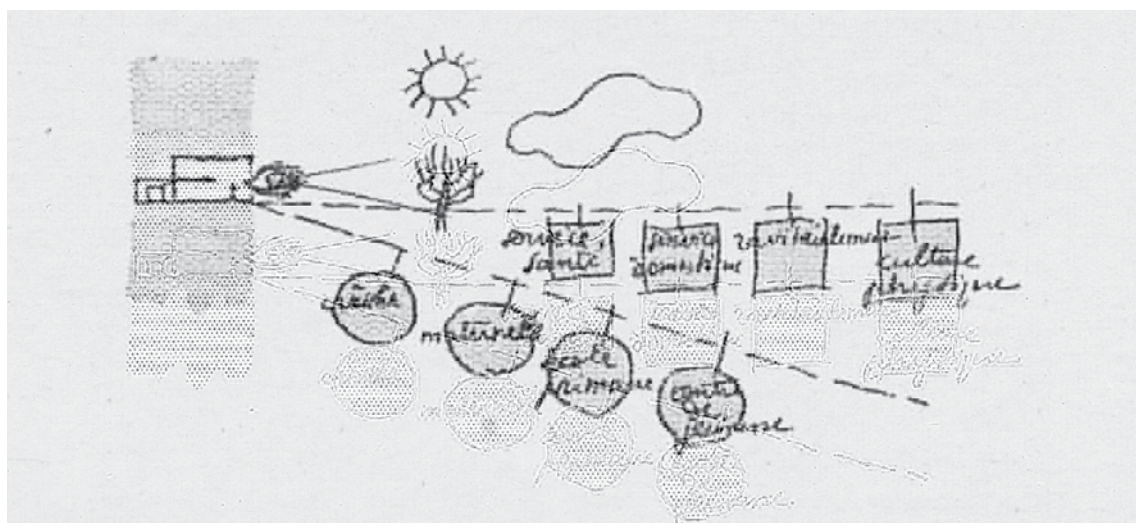 service
santé
service
domestique
ravitaillement
culture
physique
crèche
maternelle
école
primaire
centre
de
jeunesse